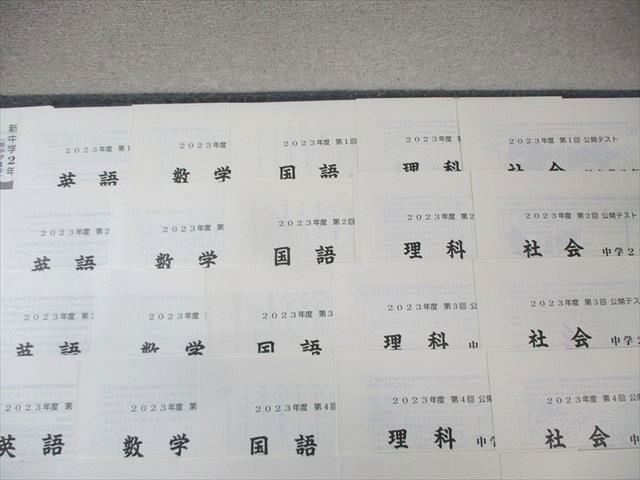 新中学2年
2023年度 第1
英語
2023年度 第
数学
2023年度 第1回
国語
2023年度 第1回
理科
2023年度 第1回 公開テスト
社会
2023年度 第2
英語
2023年度 第
数学
2023年度 第2回
国語
2023年度 第2回
理科
2023年度 第2回 公開テスト
社会 中学2
2023年度 第
英語
2023年度 第
数学
2023年度 第3
国語
2023年度 第3回 公
理科 中
2023年度 第3回 公開テス
社会 中学2
2023年度 第
英語
2023年度 第
数学
2023年度 第4回
国語
2023年度 第4回 公開
理科 中学
2023年度 第4回 公開
社会 中学